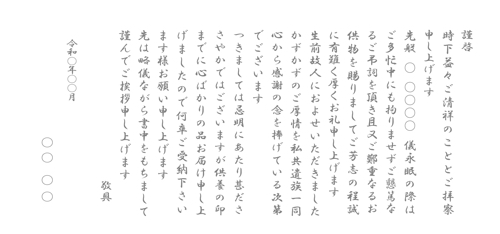 謹啓
時下益々ご清祥のこととご拝察
申し上げます
先般 〇 〇〇〇〇 儀永眠の際は
ご多忙中にも拘りませずご懇篤な
るご弔詞を頂き且又ご鄭重なるお
供物を賜りましてご芳志の程誠
に有難く厚くお礼申し上げます
生前故人におよせいただきました
かずかずのご厚情を私共遺族一同
心から感謝の念を捧げている次第
でございます
つきましては忌明にあたり甚ださ
さやかではございますが供養の印
までに心ばかりの品お届け申し上
げましたので何卒ご受納下さい
ます様お願い申し上げます
先は略儀ながら書中をもちまして
謹んでご挨拶申し上げます
敬具
令和〇年〇〇月
〇〇 〇〇